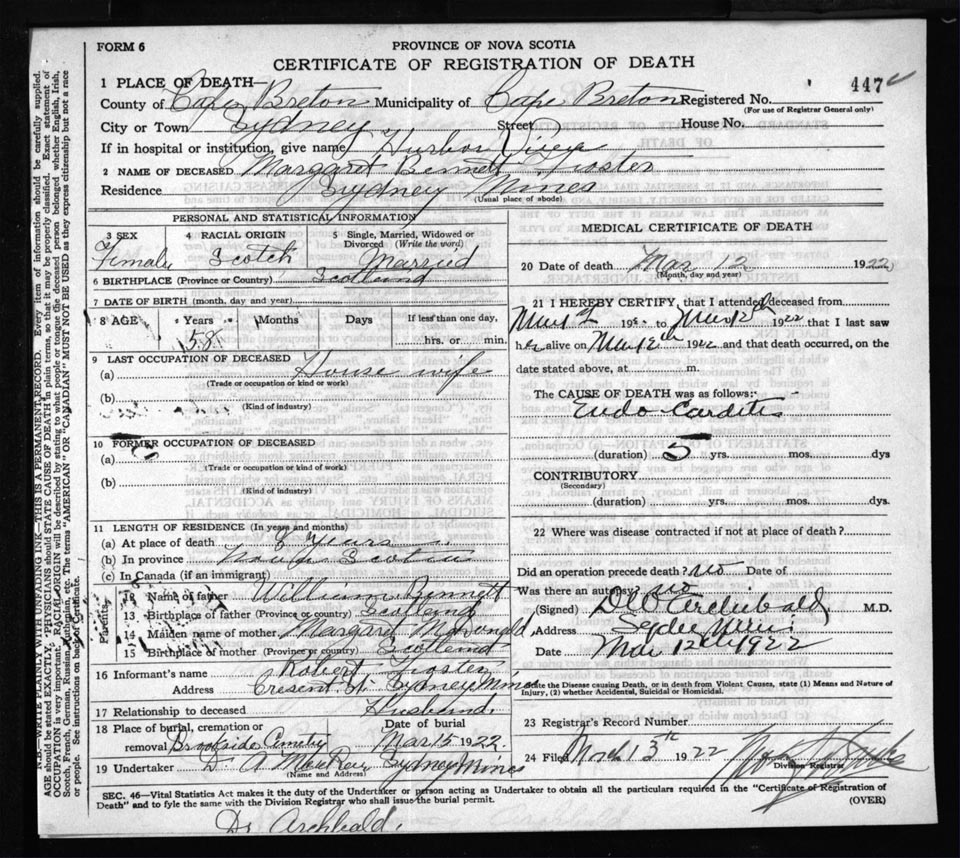 FORM 6
PROVINCE OF NOVA SCOTIA
CERTIFICATE OF REGISTRATION OF DEATH
447
1 PLACE OF DEATH—
County of Cape Breton Municipality of Cape Breton Registered No.
(For use of Registrar General only)
City or Town Sydney Street House No.
If in hospital or institution, give name Harbor View
2 NAME OF DECEASED Margaret Bennett Foster
Residence Sydney Mines
(Usual place of abode)
PERSONAL AND STATISTICAL INFORMATION
3 SEX Female
4 RACIAL ORIGIN Scotch
5 Single, Married, Widowed or Divorced (Write the word) Married
6 BIRTHPLACE (Province or Country) Scotland
7 DATE OF BIRTH (month, day and year)
8 AGE Years 58 Months Days If less than one day, hrs. or min.
9 LAST OCCUPATION OF DECEASED
(a) House wife
(Trade or occupation or kind of work)
(b)
(Kind of industry)
10 FORMER OCCUPATION OF DECEASED
(a)
(Trade or occupation or kind of work)
(b)
(Kind of industry)
11 LENGTH OF RESIDENCE (In years and months)
(a) At place of death 8 years
(b) In province Nova Scotia
(c) In Canada (if an immigrant)
Parents
12 Name of father William Bennett
13 Birthplace of father (Province or country) Scotland
14 Maiden name of mother Margaret McDonald
15 Birthplace of mother (Province or country) Scotland
16 Informant's name Robert Foster
Address Cresent St. Sydney Mines
17 Relationship to deceased Husband.
18 Place of burial, cremation or removal Brookside Cemetry Date of burial Mar 15 1922.
19 Undertaker D. A. Sydney Mines
(Name and Address)
MEDICAL CERTIFICATE OF DEATH
20 Date of death Mar 12 1922
(Month, day and year)
21 I HEREBY CERTIFY, that I attended deceased from
192 to Mar 12th 1922 that I last saw
her alive on Mar 12th 1922 and that death occurred, on the
date stated above, at m.
The CAUSE OF DEATH was as follows:
Endo Carditis
(duration) 5 yrs. mos. dys
CONTRIBUTORY
(Secondary)
(duration) yrs. mos. dys.
22 Where was disease contracted if not at place of death?
Did an operation precede death? No Date of
Was there an autopsy? No
(Signed) Archibald, M.D.
Address
Date Mar 12th 1922
State the Disease causing Death, or in death from Violent Causes, state (1) Means and Nature of
Injury, (2) whether Accidental, Suicidal or Homicidal.
23 Registrar's Record Number
24 Filed March 13th 1922
Division Registrar
SEC. 46—Vital Statistics Act makes it the duty of the Undertaker or person acting as Undertaker to obtain all the particulars required in the "Certificate of Registration of
Death" and to fyle the same with the Division Registrar who shall issue the burial permit.
(OVER)
Dr Archbald.
N.B.—WRITE PLAINLY WITH UNFADING INK—THIS IS A PERMANENT RECORD. Every item of information should be carefully supplied.
AGE should be stated EXACTLY. PHYSICIANS should STATE CAUSE OF DEATH in plain terms, so that it may be properly classified. Exact statement of
OCCUPATION is very important. RACIAL ORIGIN will be described by stating to what people or tongue the deceased person belonged whether English, Irish,
Scotch, French, German, Russian, Ruthenian, etc. The terms "AMERICAN" OR "CANADIAN" MUST NOT BE USED as they express citizenship but not a race
or people. See instructions on back of Certificate.